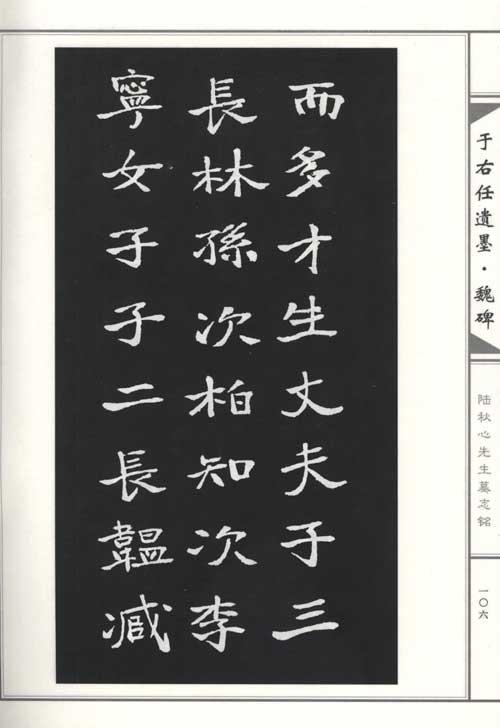 而多才生丈夫子三
長林孫次柏知次李
寧女子子二長韞减
于右任遺墨·魏碑
陆秋心先生墓志铭
一〇六